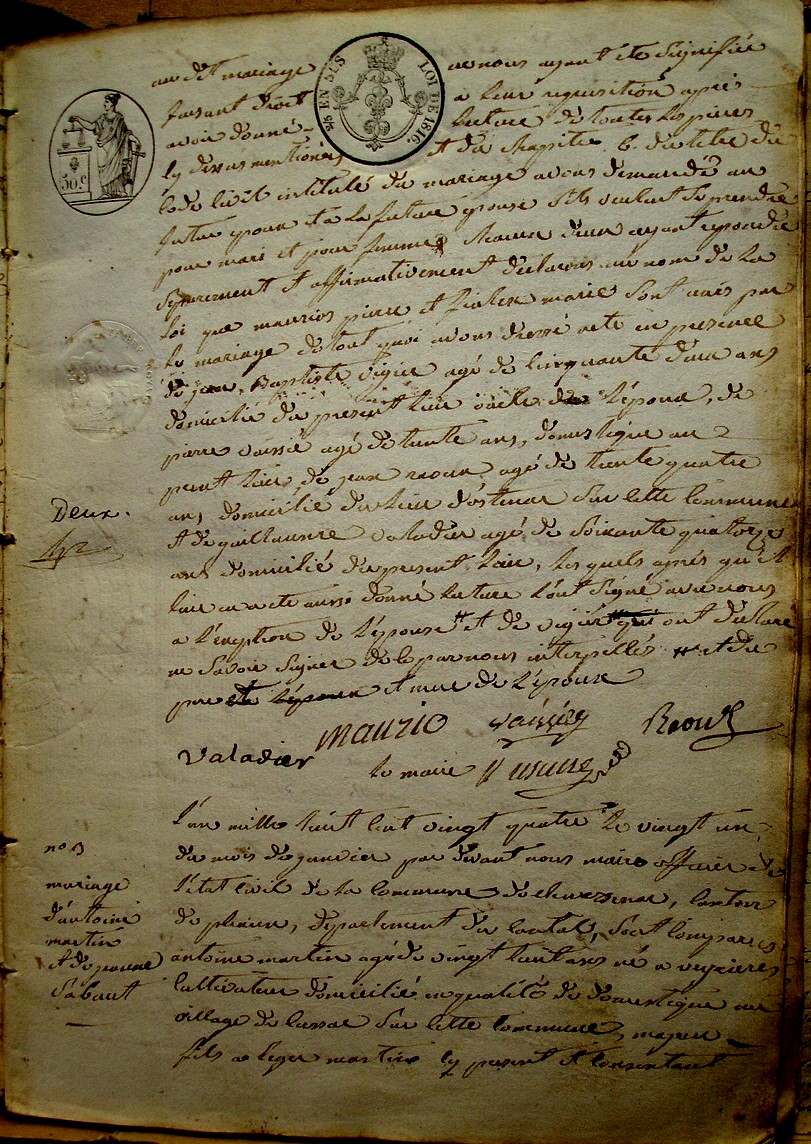 au dit mariage ne nous ayant été signifiée
faisant droit a leur requisition après
avoir donné lecture de toutes les pièces
cy dessus mentionées et du chapitre 6. du titre du
code civil intitulé du mariage avons demandé au
futur epoux et a la future epouse s'ils veulent se prendre
pour mari et pour femme chacun d'eux ayant repondu
séparement et affirmativement déclarons au nom de la
loi que maurios pierre et marie sont unis par
le mariage de tout quoi avons dressé acte en presence
de jean Baptiste vigier agé de cinquante deux ans
domicilié du present lieu oncle de l'epoux, de
pierre agé de trente ans, domestique au
present lieu, de jean raoux agé de trente quatre
ans domicilié du lieu d'ostenac sur cette commune
et de guillaume valadier agé de soixante quatorze
ans domicilié du present lieu, les quels après qu'il
leur en a été aussi donné lecture l'ont signé avec nous
a l'exeption de l'epouse # et de vigier qui ont déclaré
ne savoir signer de ce par nous interpellés # et du
pere et l'epoux et mere de l'epoux
valadier maurio Raoux
le maire
L'an mille huit cent vingt quatre le vingt un
du mois de janvier par devant nous maire officier de
l'état civil de la commune de chavagnac, canton
de pleaux, département du cantal, sont comparus
antoine martin agé de vingt huit ans né a veyrieres
cultivateur domicilié en qualité de domestique au
village de lassac sur cette commune, majeur
fils a leger martin cy present et consentant
50 c
25 EN SUS
LOI DE 1816
Deux.
no 3
mariage
d'antoine
martin
et de jeanne
Sabaut